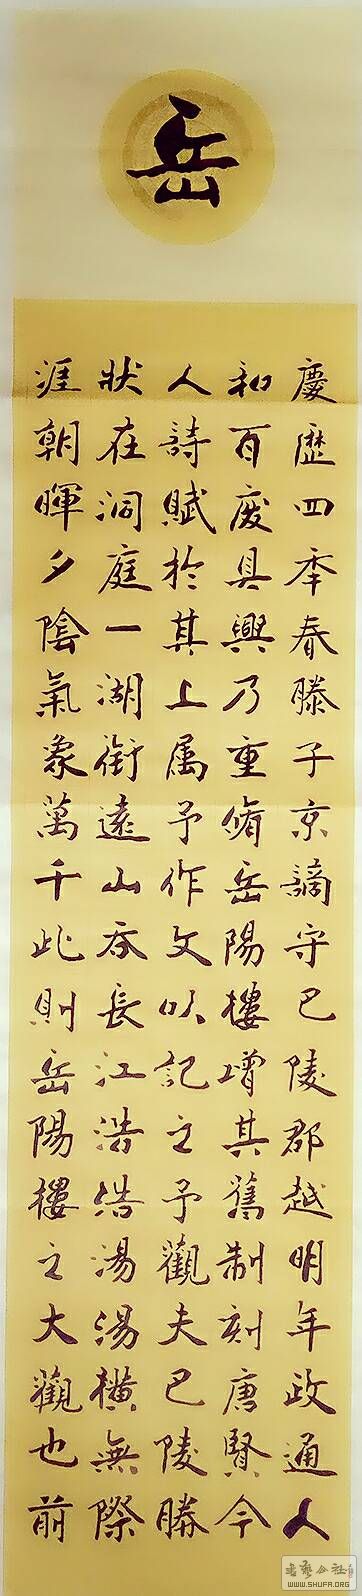 岳
慶歷四秊春滕子京謫守巴陵郡越明年政通人
和百废具興乃重脩岳陽樓增其舊制刻唐賢今
人詩賦於其上属予作文以記之予觀夫巴陵勝
狀在洞庭一湖銜遠山吞長江浩浩湯湯橫無際
涯朝暉夕陰氣象萬千此則岳陽樓之大觀也前
書藝公社
WWW.SHUFA.ORG